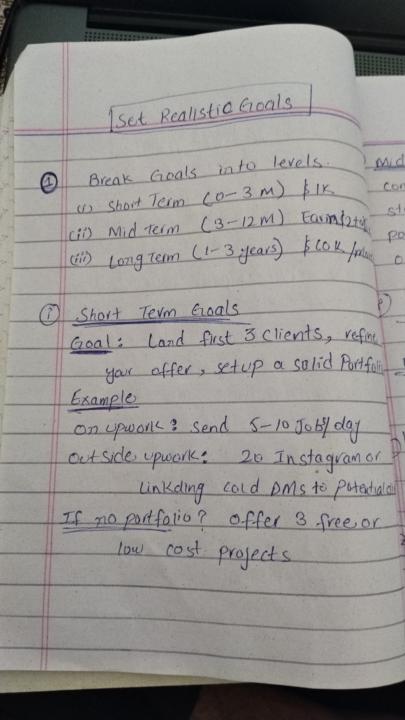 Set Realistic Goals
① Break Goals into levels.
(i) Short Term (0-3 M) $1K
(ii) Mid Term (3-12M) Earn
(iii) Long Term (1-3 years) $10K/
① Short Term Goals
Goal: Land first 3 clients, refine
your offer, setup a solid Portfolio
Example
On upwork: send 5-10 Job/day
Outside upwork: 20 Instagram or
Linkding cold DMs to Potential
If no portfolio? offer 3 free or
low cost projects
Mid
con